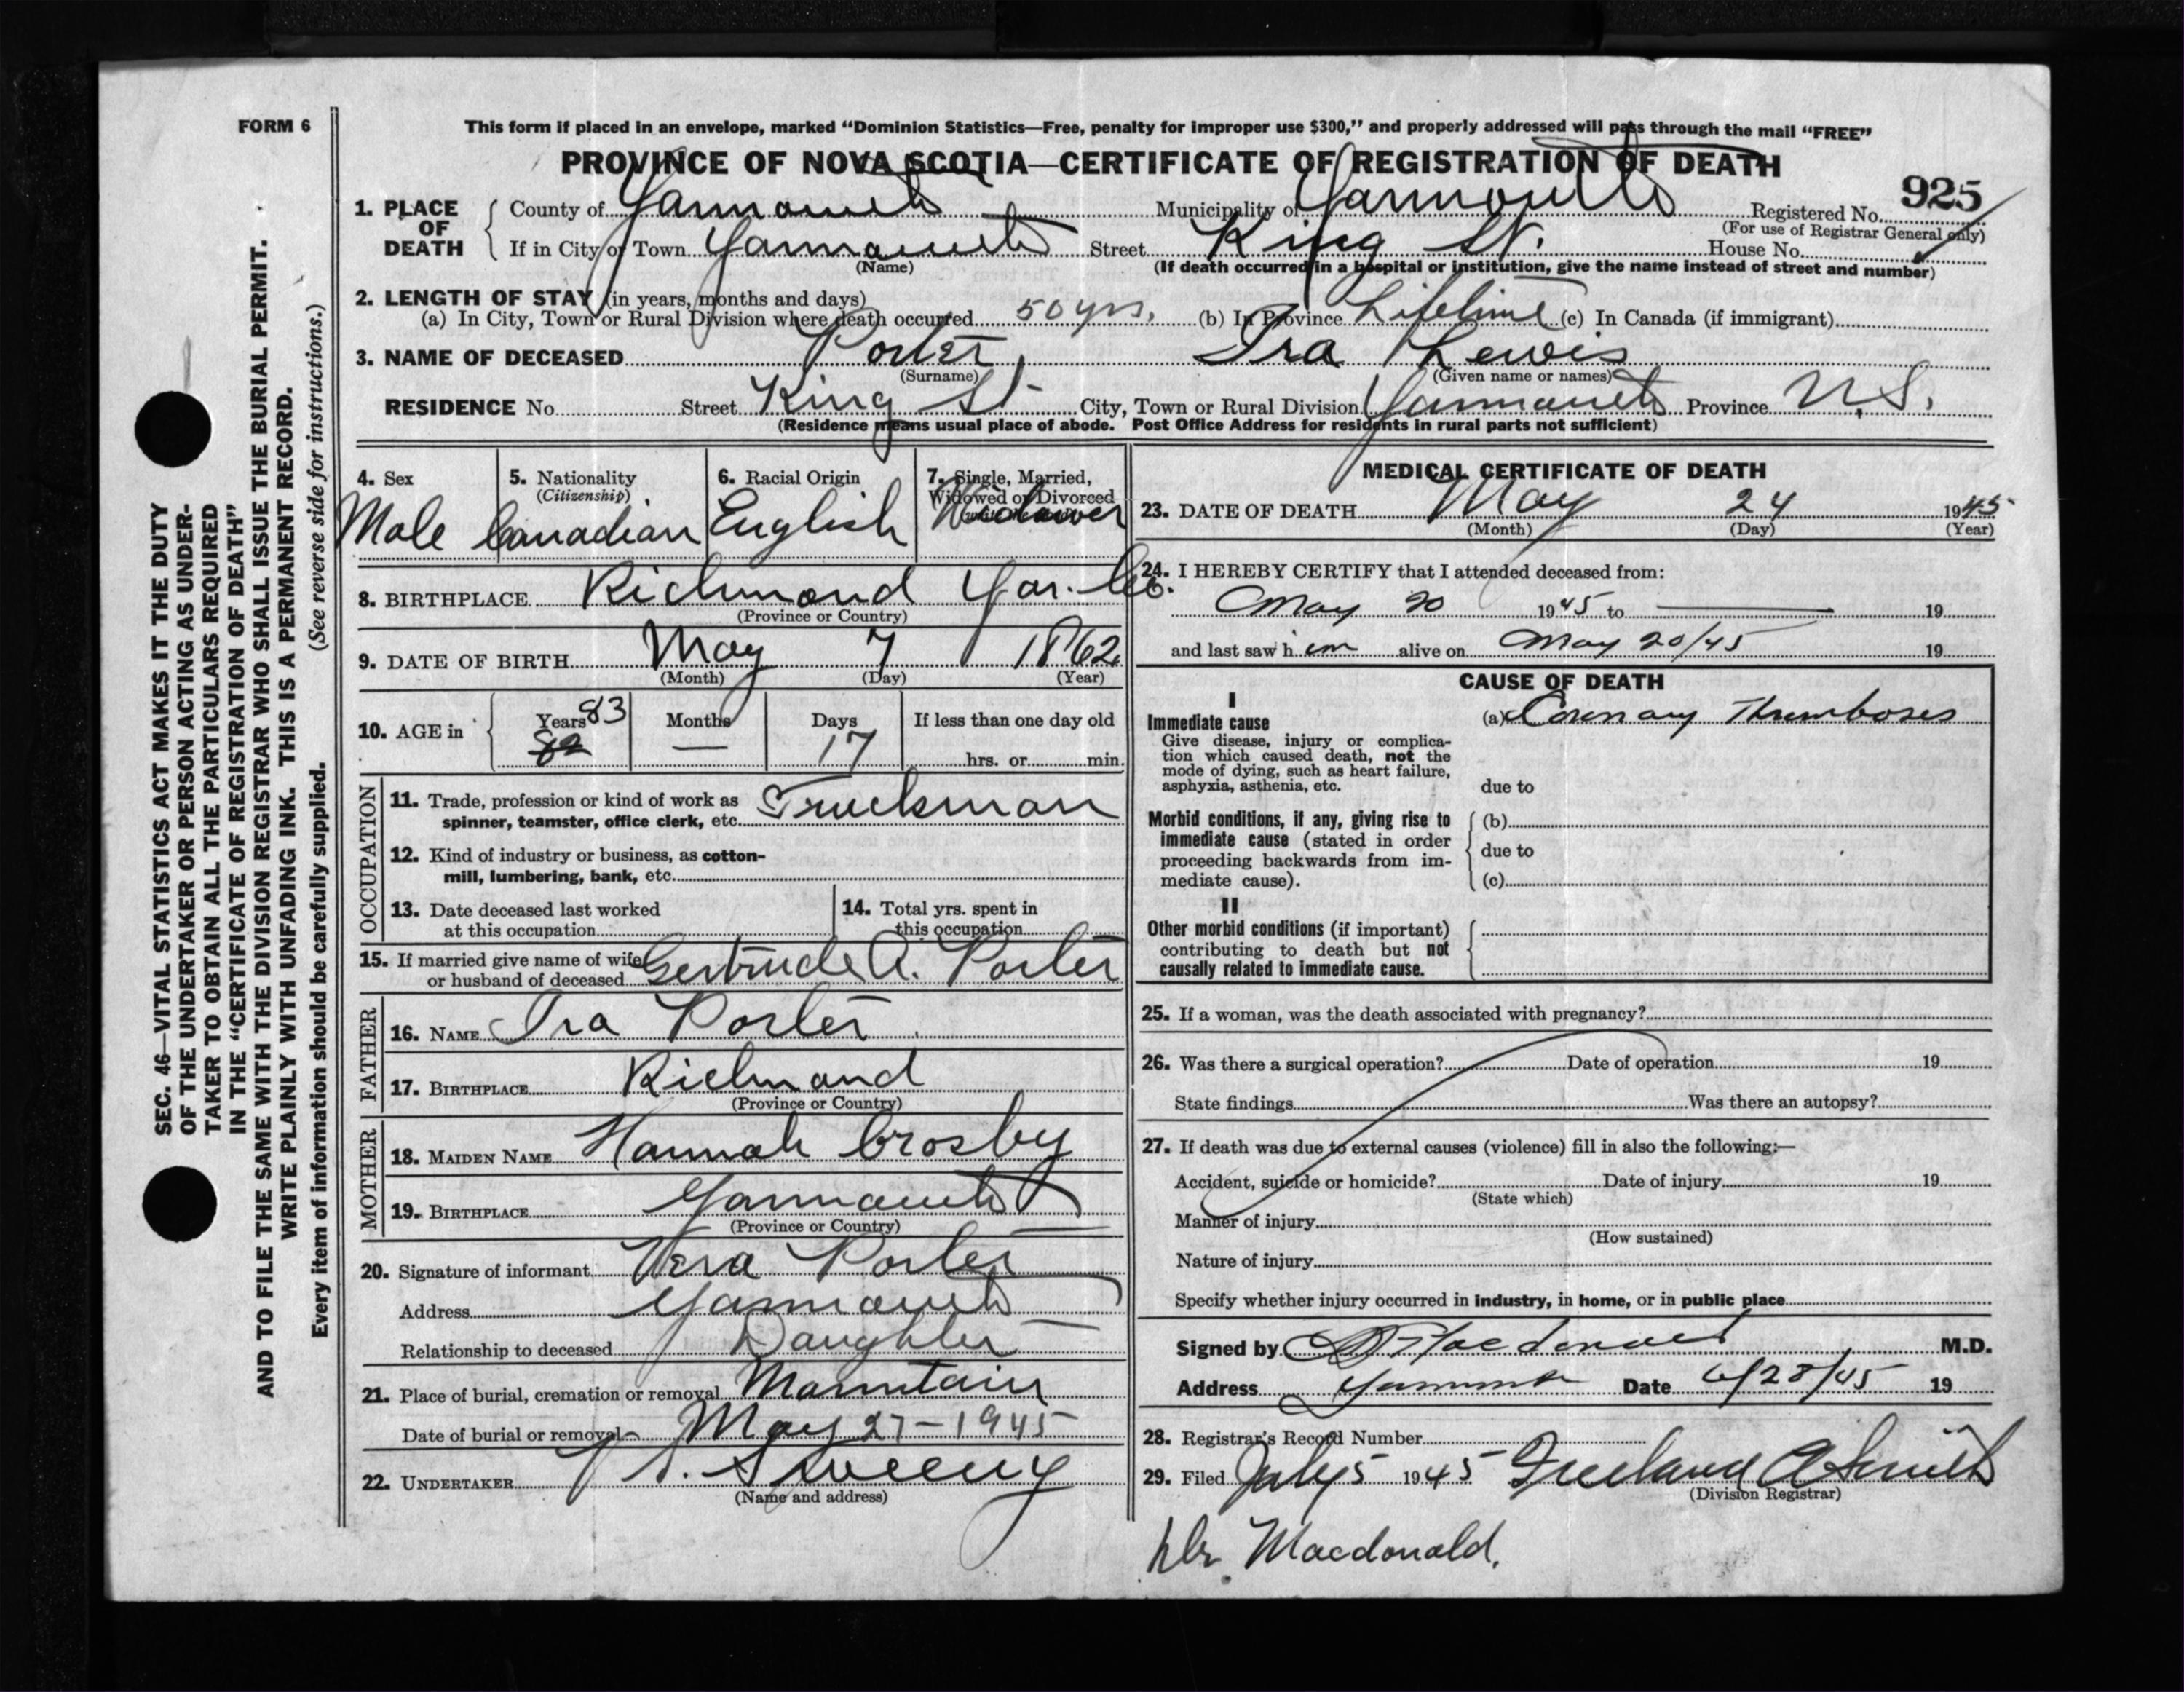 FORM 6
This form if placed in an envelope, marked "Dominion Statistics—Free, penalty for improper use $300," and properly addressed will pass through the mail "FREE"
PROVINCE OF NOVA SCOTIA—CERTIFICATE OF REGISTRATION OF DEATH
925
1. PLACE OF DEATH
County of Yarmouth Municipality of Yarmouth Registered No.
(For use of Registrar General only)
If in City or Town Yarmouth Street King St. House No.
(Name)
(If death occurred in a hospital or institution, give the name instead of street and number)
2. LENGTH OF STAY (in years, months and days)
(a) In City, Town or Rural Division where death occurred 50 yrs. (b) In Province Lifetime (c) In Canada (if immigrant)
3. NAME OF DECEASED Porter, Ira Lewis
(Surname) (Given name or names)
RESIDENCE No. Street King St City, Town or Rural Division Yarmouth Province N.S.
(Residence means usual place of abode. Post Office Address for residents in rural parts not sufficient)
4. Sex
Male
5. Nationality
(Citizenship)
Canadian
6. Racial Origin
English
7. Single, Married,
Widowed or Divorced
Widower
8. BIRTHPLACE Richmond Yar. Co.
(Province or Country)
9. DATE OF BIRTH May 7 1862
(Month) (Day) (Year)
10. AGE in
Years 83
82
Months —
Days 17
If less than one day old
hrs. or min.
OCCUPATION
11. Trade, profession or kind of work as
spinner, teamster, office clerk, etc. Truckman
12. Kind of industry or business, as cotton-
mill, lumbering, bank, etc.
13. Date deceased last worked
at this occupation
14. Total yrs. spent in
this occupation
15. If married give name of wife
or husband of deceased Gertrude A. Porter
FATHER
16. NAME Ira Porter
17. BIRTHPLACE Richmond
(Province or Country)
MOTHER
18. MAIDEN NAME Hannah Crosby
19. BIRTHPLACE Yarmouth
(Province or Country)
20. Signature of informant Vera Porter
Address Yarmouth
Relationship to deceased Daughter
21. Place of burial, cremation or removal Mountain
Date of burial or removal May 27-1945
22. UNDERTAKER V S. Sweeny
(Name and address)
MEDICAL CERTIFICATE OF DEATH
23. DATE OF DEATH May 24 1945
(Month) (Day) (Year)
24. I HEREBY CERTIFY that I attended deceased from:
May 20 1945 to — 19
and last saw him alive on May 20/45 19
CAUSE OF DEATH
I
Immediate cause
Give disease, injury or complica-
tion which caused death, not the
mode of dying, such as heart failure,
asphyxia, asthenia, etc.
(a) Coronary Thromboses
due to
Morbid conditions, if any, giving rise to
immediate cause (stated in order
proceeding backwards from im-
mediate cause).
(b)
due to
(c)
II
Other morbid conditions (if important)
contributing to death but not
causally related to immediate cause.
25. If a woman, was the death associated with pregnancy?
26. Was there a surgical operation? Date of operation 19
State findings Was there an autopsy?
27. If death was due to external causes (violence) fill in also the following:—
Accident, suicide or homicide? Date of injury 19
(State which)
Manner of injury
(How sustained)
Nature of injury
Specify whether injury occurred in industry, in home, or in public place
Signed by Macdonald M.D.
Address Yarmouth Date 6/28/45 19
28. Registrar's Record Number
29. Filed July 5 1945 Freeland A Smith
(Division Registrar)
Dr Macdonald.
SEC. 46—VITAL STATISTICS ACT MAKES IT THE DUTY
OF THE UNDERTAKER OR PERSON ACTING AS UNDER-
TAKER TO OBTAIN ALL THE PARTICULARS REQUIRED
IN THE "CERTIFICATE OF REGISTRATION OF DEATH"
AND TO FILE THE SAME WITH THE DIVISION REGISTRAR WHO SHALL ISSUE THE BURIAL PERMIT.
WRITE PLAINLY WITH UNFADING INK. THIS IS A PERMANENT RECORD.
Every item of information should be carefully supplied. (See reverse side for instructions.)